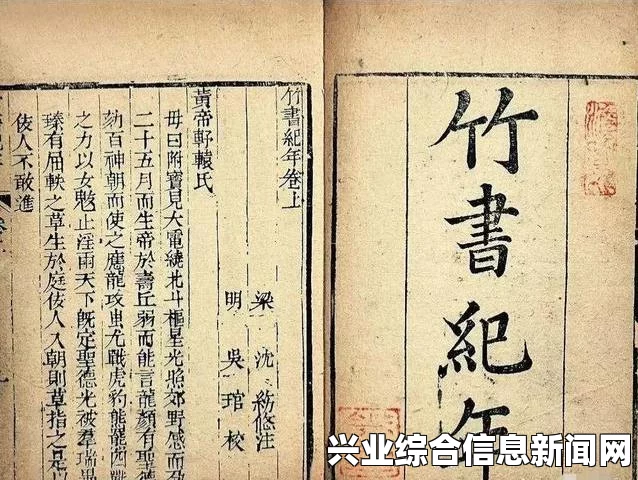 竹書紀年
竹書紀年卷上
梁 沈約附注
明 吳琯校
黃帝軒轅氏
母曰附寶見大電繞北斗樞星光照郊野感而孕
二十五月而生帝於壽丘弱而能言龍顏有聖德
劾百神朝而使之應龍攻蚩尤戰虎豹熊羆四
之力以女魃止淫雨天下既定聖德光被羣瑞畢
臻有屈軼之草生於庭佞人入朝則草指之是以
佞人不敢進
兴业综合信息新闻网